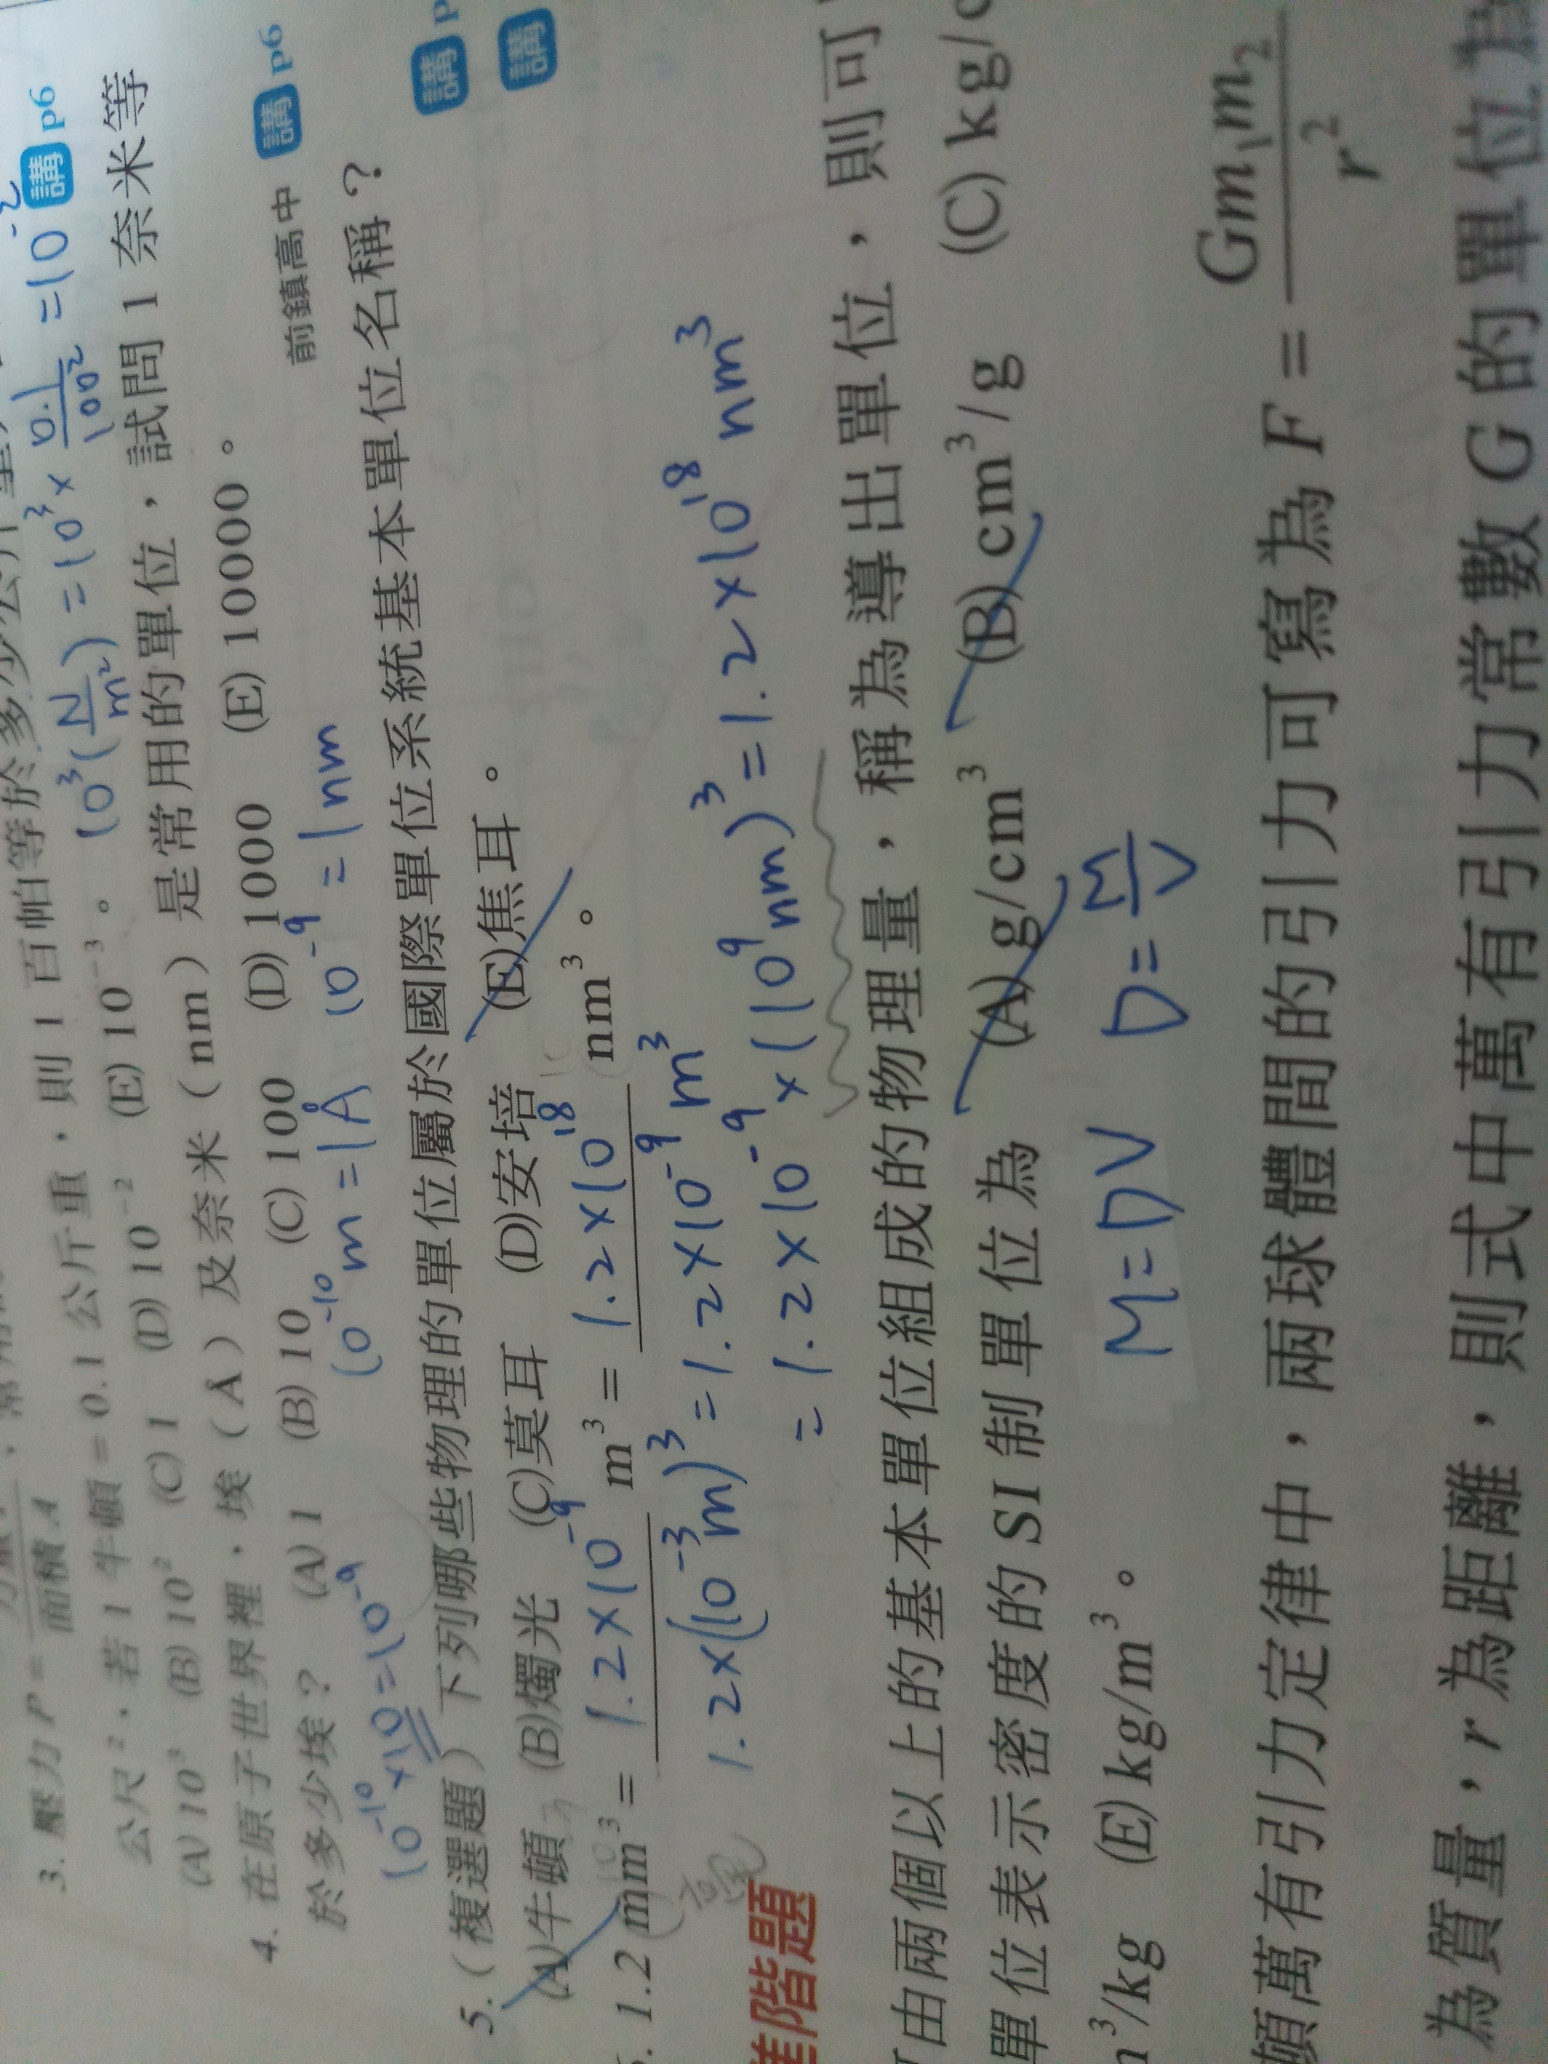 3. 壓力 P = 面積 A
= 10⁻² 講 p6
公尺²,若 1 牛頓 = 0.1 公斤重,則 1 百帕等於多少公斤重
(A) 10³ (B) 10² (C) 1 (D) 10⁻² (E) 10⁻³。 10³(N/m²) = 10³ × 0.1/100²
4. 在原子世界裡,埃(A)及奈米(nm)是常用的單位,試問 1 奈米等
於多少埃? (A) 1 (B) 10 (C) 100 (D) 1000 (E) 10000。 前鎮高中 講 p6
10⁻¹⁰ × 10 = 10⁻⁹ 10⁻¹⁰ m = 1Å 10⁻⁹ = 1nm
5.(複選題)下列哪些物理的單位屬於國際單位系統基本單位名稱?
(A)牛頓 (B)燭光 (C)莫耳 (D)安培 (E)焦耳。 講 p
1.2 mm³ = 1.2×10⁻⁹ m³ = 1.2×10¹⁸ nm³。 講
毫
1.2×(10⁻³m)³ = 1.2×10⁻⁹ m³
= 1.2×10⁻⁹ × (10⁹nm)³ = 1.2×10¹⁸ nm³
進階題
可由兩個以上的基本單位組成的物理量,稱為導出單位,則可
單位表示密度的 SI 制單位為 (A) g/cm³ (B) cm³/g (C) kg/c
m³/kg (E) kg/m³。 M=DV D=M/V
頓萬有引力定律中,兩球體間的引力可寫為 F = Gm₁m₂/r²
為質量,r 為距離,則式中萬有引力常數 G 的單位為